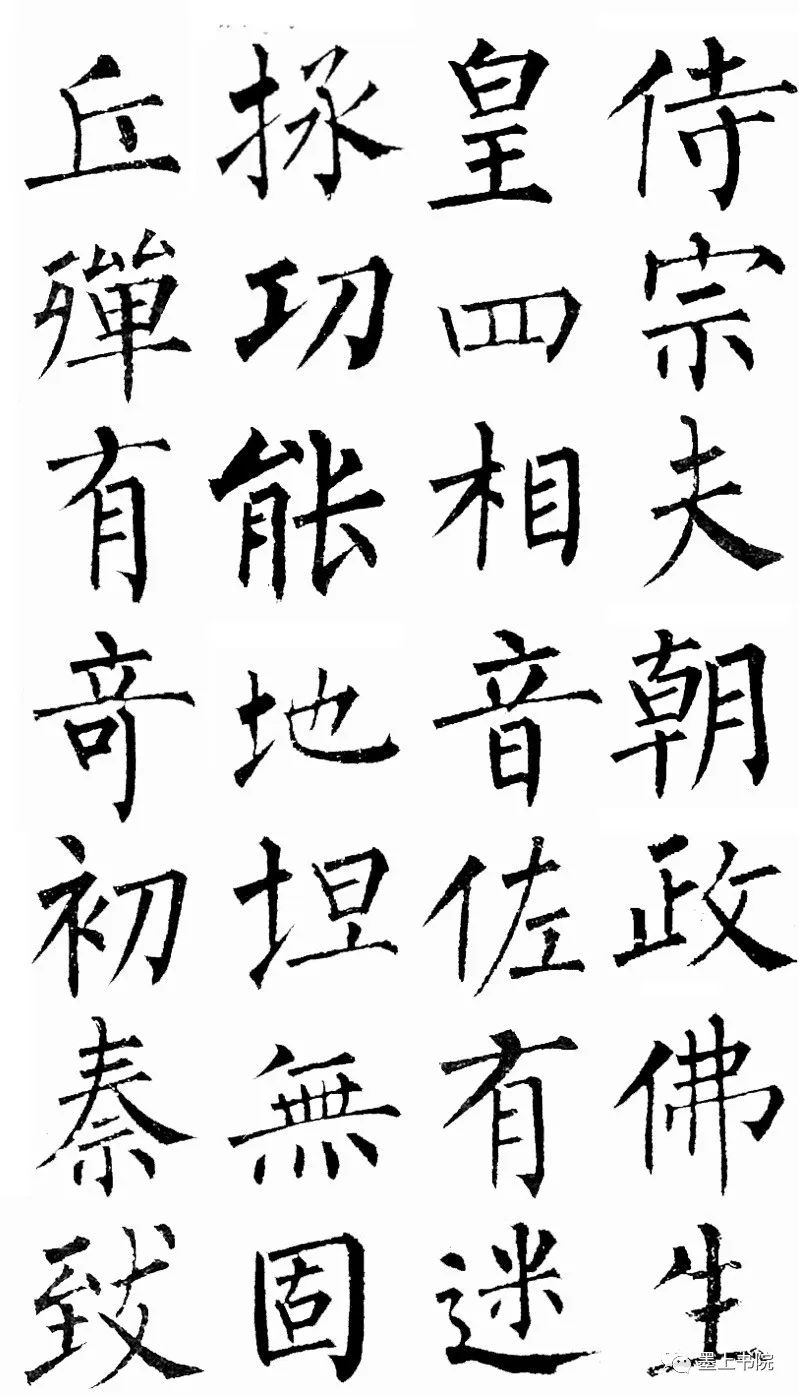 侍宗夫朝政佛生
皇四相音佐有迷
拯功能地坦無固
丘殫有奇初秦致
墨上书院